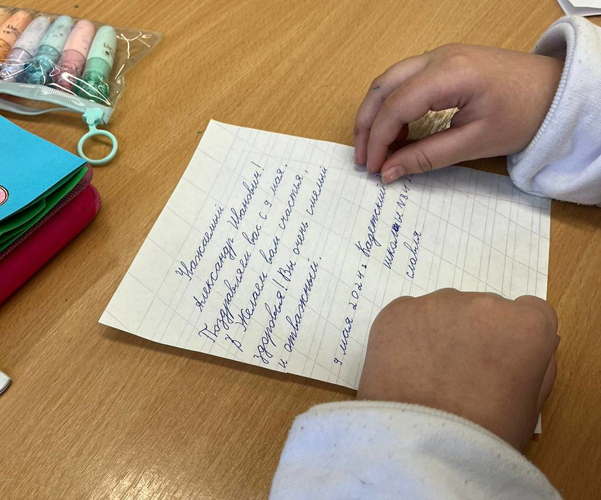 Уважаемый
Александр Иванович!
Поздравляем вас с 9 мая.
Желаем вам счастья,
здоровья! Вы очень смелий
и отважный.
9 мая 2024г. Кадетский
школы N
славля